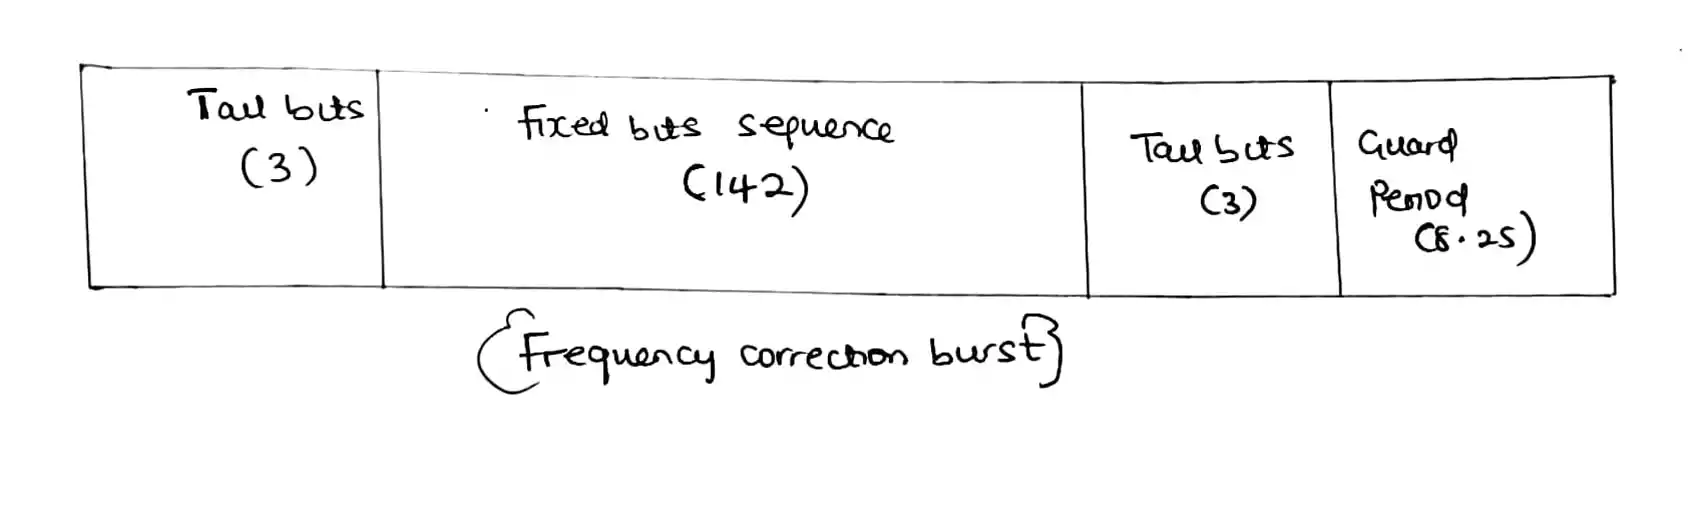 Tail bits
(3)
Fixed bits sequence
(142)
Tail bits
(3)
Guard
Period
(8.25)
{Frequency correction burst}